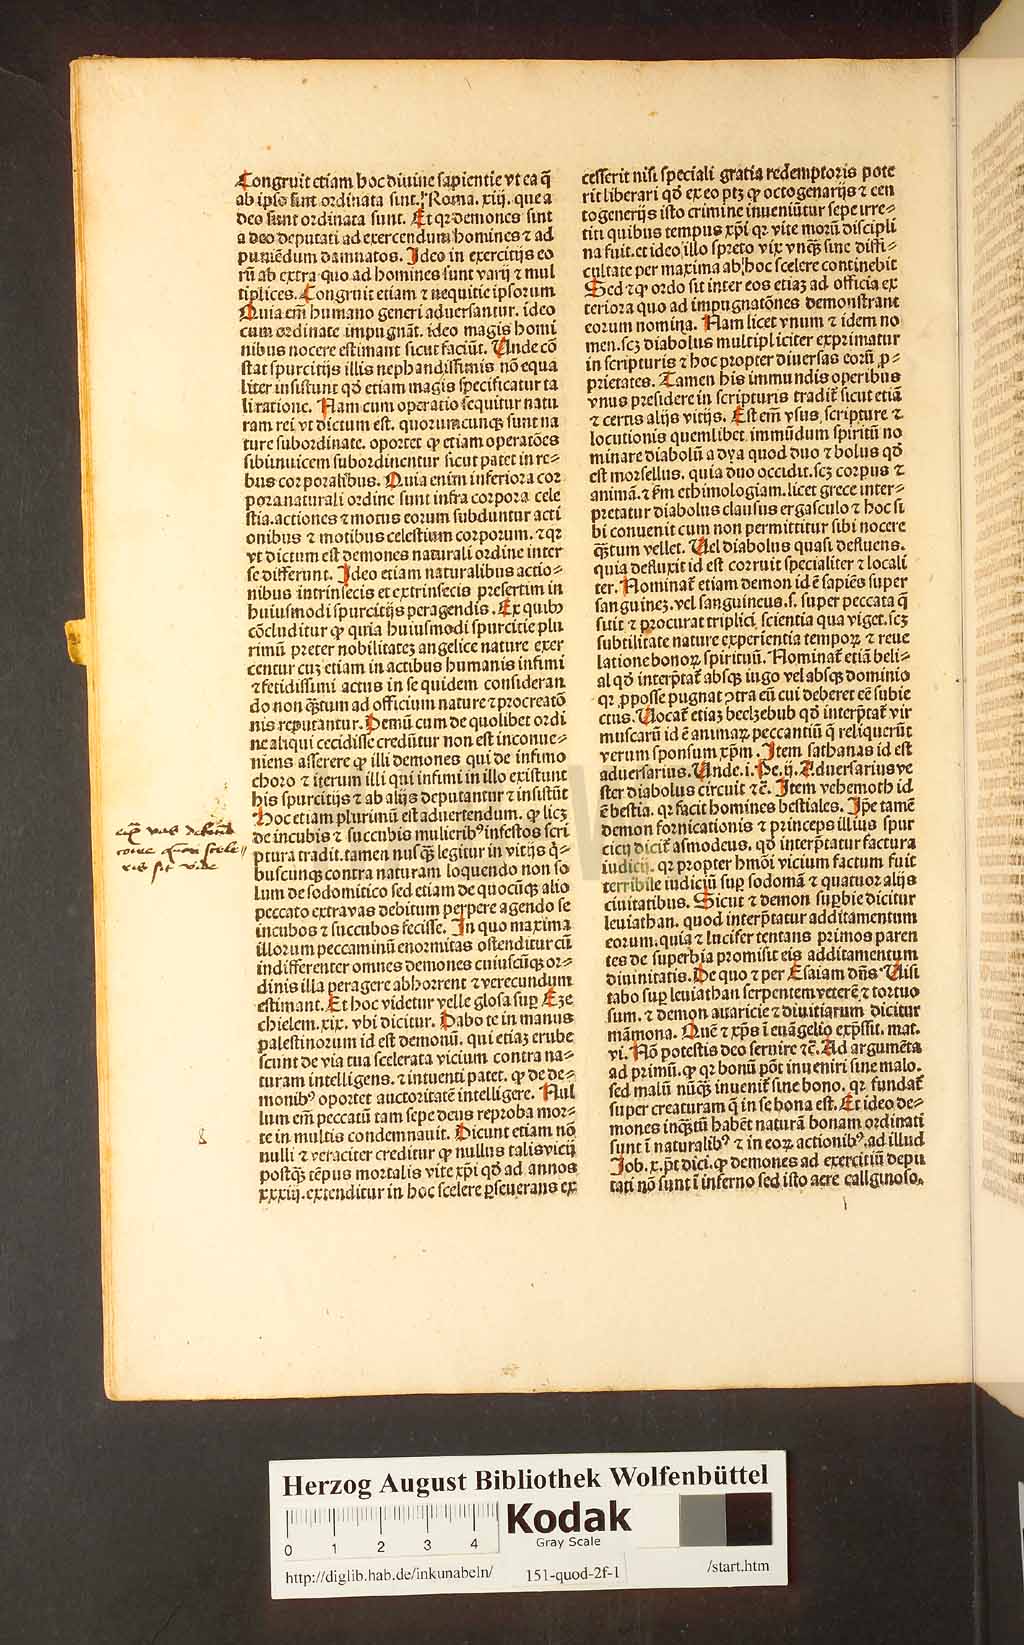 Congruit etiam hoc diuine sapientie vt ea q̄
ab ipso sunt ordinata sunt. Roma. xiij. que a
deo sunt ordinata sunt. Et qꝛ demones sint
a deo deputati ad exercendum homines ⁊ ad
puniēdum damnatos. Ideo in exercitijs eo
rū ab extra quo ad homines sunt varij ⁊ mul
tiplices. Congruit etiam ⁊ nequitie ipsorum
Quia em̄ humano generi aduersantur. ideo
cum ordinate impugnāt. ideo magis homi
nibus nocere estimant sicut faciūt. Unde cō
stat spurcitijs illis nephandissimis nō equa
liter insistunt qd̄ etiam magis specificatur ta
li ratione. Nam cum operatio sequitur natu
ram rei vt dictum est. quorumcunqꝫ sunt na
ture subordinate. oportet ꝙ etiam operatōes
sibiinuicem subordinentur sicut patet in re⸗
bus corporalibus. Quia enim inferiora cor
pora naturali ordine sunt infra corpora cele
stia. actiones ⁊ motus eorum subduntur acti
onibus ⁊ motibus celestium corporum. ⁊ qꝛ
vt dictum est demones naturali ordine inter
se differunt. Ideo etiam naturalibus actio⸗
nibus intrinsecis et extrinsecis presertim in
huiusmodi spurcitijs peragendis. Ex quibꝫ
cōcluditur ꝙ quia huiusmodi spurcitie plu
rimū preter nobilitatez angelice nature exer
centur cuz etiam in actibus humanis infimi
⁊ fetidissimi actus in se quidem consideran
do non qꝫtum ad officium nature ⁊ procreatō
nis reputantur. Demū cum de quolibet ordi
ne aliqui cecidisse credūtur non est inconue⸗
niens asserere ꝙ illi demones qui de infimo
choro ⁊ iterum illi qui infimi in illo existunt
his spurcitijs ⁊ ab alijs deputantur ⁊ insistūt
Hoc etiam plurimū est aduertendum. ꝙ licꝫ
de incubis ⁊ succubis mulieribꝰ infestos scri
ptura tradit. tamen nusqꝫ legitur in vitijs q̄⸗
buscunqꝫ contra naturam loquendo non so
lum de sodomitico sed etiam de quocūqꝫ alio
peccato extra vas debitum perpere agendo se
incubos ⁊ succubos fecisse. In quo maxima
illorum peccaminū enormitas ostenditur cū
indifferenter omnes demones cuiuscūqꝫ or⸗
dinis illa peragere abhorrent ⁊ verecundum
estimant. Et hoc videtur velle glosa suꝑ Eze
chielem. xix. vbi dicitur. Dabo te in manus
palestinorum id est demonū. qui etiaz erube
scunt de via tua scelerata vicium contra na⸗
turam intelligens. ⁊ intuenti patet. ꝙ de de⸗
monibꝰ oportet auctoritatē intelligere. Nul
lum em̄ peccatū tam sepe deus reproba mor⸗
te in multis condemnauit. Dicunt etiam nō
nulli ⁊ veraciter creditur ꝙ nullus talis vicij
postqꝫ tēpus mortalis vite xp̄i qd̄ ad annos
xxxiij. extenditur in hoc scelere ꝑseuerans ex
cesserit nisi speciali gratia redemptoris pote
rit liberari qd̄ ex eo ptꝫ ꝙ octogenarijs ⁊ cen
togenerijs isto crimine inueniūtur sepe irre⸗
titi quibus tempus xp̄i qꝛ vite morū discipli
na fuit. et ideo illo spreto vix vnqꝫ sine diffi⸗
cultate per maxima ab hoc scelere continebit
Sed ⁊ ꝙ ordo sit inter eos etiaz ad officia ex
teriora quo ad impugnatōnes demonstrant
eorum nomina. Nam licet vnum ⁊ idem no
men. scꝫ diabolus multipliciter exprimatur
in scripturis ⁊ hoc propter diuersas eorū ꝓ⸗
prietates. Tamen his immundis operibus
vnus presidere in scripturis tradit̄ sicut etiā
⁊ certis alijs vitijs. Est em̄ vsus scripture ⁊
locutionis quemlibet immūdum spiritū no
minare diabolū a dya quod duo ⁊ bolus qd̄
est morsellus. quia duo occidit. scꝫ corpus ⁊
animā. ⁊ ẜm ethimologiam. licet grece inter⸗
pretatur diabolus clausus ergasculo ⁊ hoc si
bi conuenit cum non permittitur sibi nocere
qꝫtum vellet. Uel diabolus quasi defluens.
quia defluxit id est corruit specialiter ⁊ locali
ter. Nominat̄ etiam demon id ē sapiēs super
sanguinez. vel sanguineus. s. super peccata q̄
sitit ⁊ procurat triplici scientia qua viget. scꝫ
subtilitate nature experientia tempoꝝ ⁊ reue
latione bonoꝝ spirituū. Nominat̄ etiā beli⸗
al qd̄ interp̄tat̄ absqꝫ iugo vel absqꝫ dominio
qꝛ ꝓ posse pugnat ɔtra eū cui deberet eē subie
ctus. Uocat̄ etiaz beelzebub qd̄ interp̄tat̄ vir
muscarū id ē animaꝝ peccantiū q̄ reliquerūt
verum sponsum xp̄m. Item sathanas id est
aduersarius. Unde. i. Pe. ij. Aduersarius ve
ster diabolus circuit ⁊c̄. Item vehemoth id
ē bestia. qꝛ facit homines bestiales. Ip̄e tamē
demon fornicationis ⁊ princeps illius spur
cicij dicit̄ asmodeus. qd̄ interp̄tatur factura
iudicij. qꝛ propter hmōi vicium factum fuit
terribile iudiciū suꝑ sodomā ⁊ quatuor alijs
ciuitatibus. Sicut ⁊ demon suꝑbie dicitur
leuiathan. quod interp̄tatur additamentum
eorum. quia ⁊ lucifer tentans primos paren
tes de superbia promisit eis additamentum
diuinitatis. De quo ⁊ per Esaiam dn̄s. Uisi
tabo suꝑ leuiathan serpentem veterē ⁊ tortuo
sum. ⁊ demon auaricie ⁊ diuitiarum dicitur
māmona. Quē ⁊ xp̄s ī euāgelio exp̄ssit. mat.
vi. Nō potestis deo seruire ⁊c̄. Ad argumēta
ad primū. ꝙ qꝛ bonū pōt inueniri sine malo.
sed malū nūqꝫ inuenit̄ sine bono. qꝛ fundat̄
super creaturam q̄ in se bona est. Et ideo de⸗
mones inqꝫtū habēt naturā bonam ordinati
sunt ī naturalibꝰ ⁊ in eoꝝ actionibꝰ. ad illud
Job. x. p̄t dici. ꝙ demones ad exercitiū depu
tati nō sunt ī inferno sed isto aere caliginoso.
Herzog August Bibliothek Wolfenbüttel
0 1 2 3 4
Kodak
Gray Scale
http://diglib.hab.de/inkunabeln/ 151-quod-2f-1 /start.htm